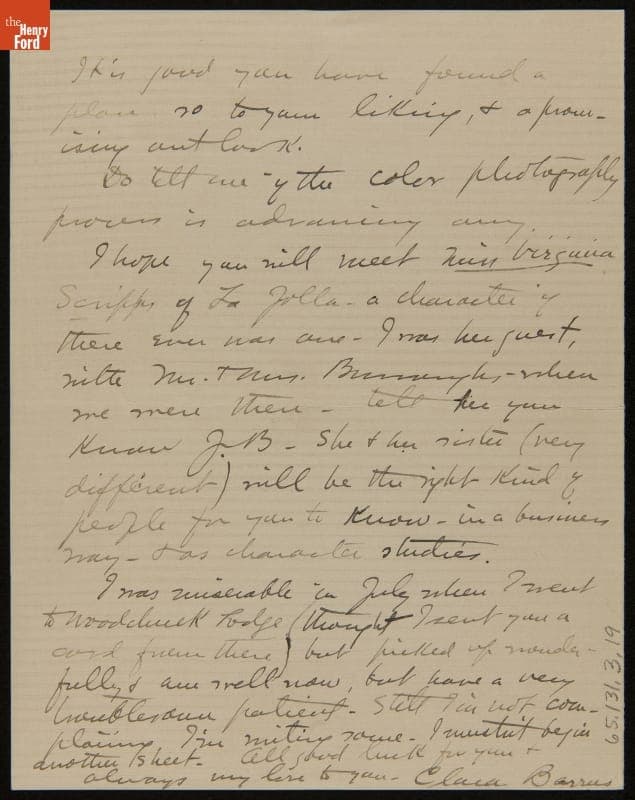 the
Henry
Ford
It is good you have found a
place so to your liking, & a prom-
ising outlook.
Do tell me if the color photography
process is advancing any.
I hope you will meet Miss Virginia
Scripps of La Jolla - a character if
there ever was one - I was her guest,
with Mr. & Mrs. Burroughs - when
we were there - tell her you
know J.B - She & her sister (very
different) will be the right kind of
people for you to know - in a business
way - & as character studies.
I was miserable in July when I went
to Woodchuck Lodge (thought I sent you a
card from there) but picked up wonder-
fully & am well now, but have a very
troublesome patient - Still I'm not com-
plaining. I'm writing some. I mustn't begin
another sheet. All good luck for you &
always my love to you - Clara Barrus
65.131.3.19